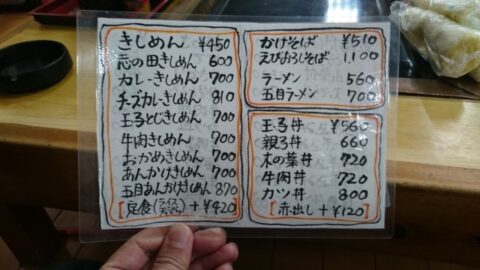 きしめん ¥450
志の田きしめん 600
カレーきしめん 700
チーズカレーきしめん 810
玉子とじきしめん 700
牛肉きしめん 700
おかめきしめん 700
あんかけきしめん 700
五目あんかけきしめん 870
[定食(ライス) +¥420]
かけそば ¥510
えびおろしそば 1,100
ラーメン 560
五目ラーメン 700
玉子丼 ¥560
親子丼 660
木の葉丼 720
牛肉丼 720
カツ丼 800
[赤出し +¥120]